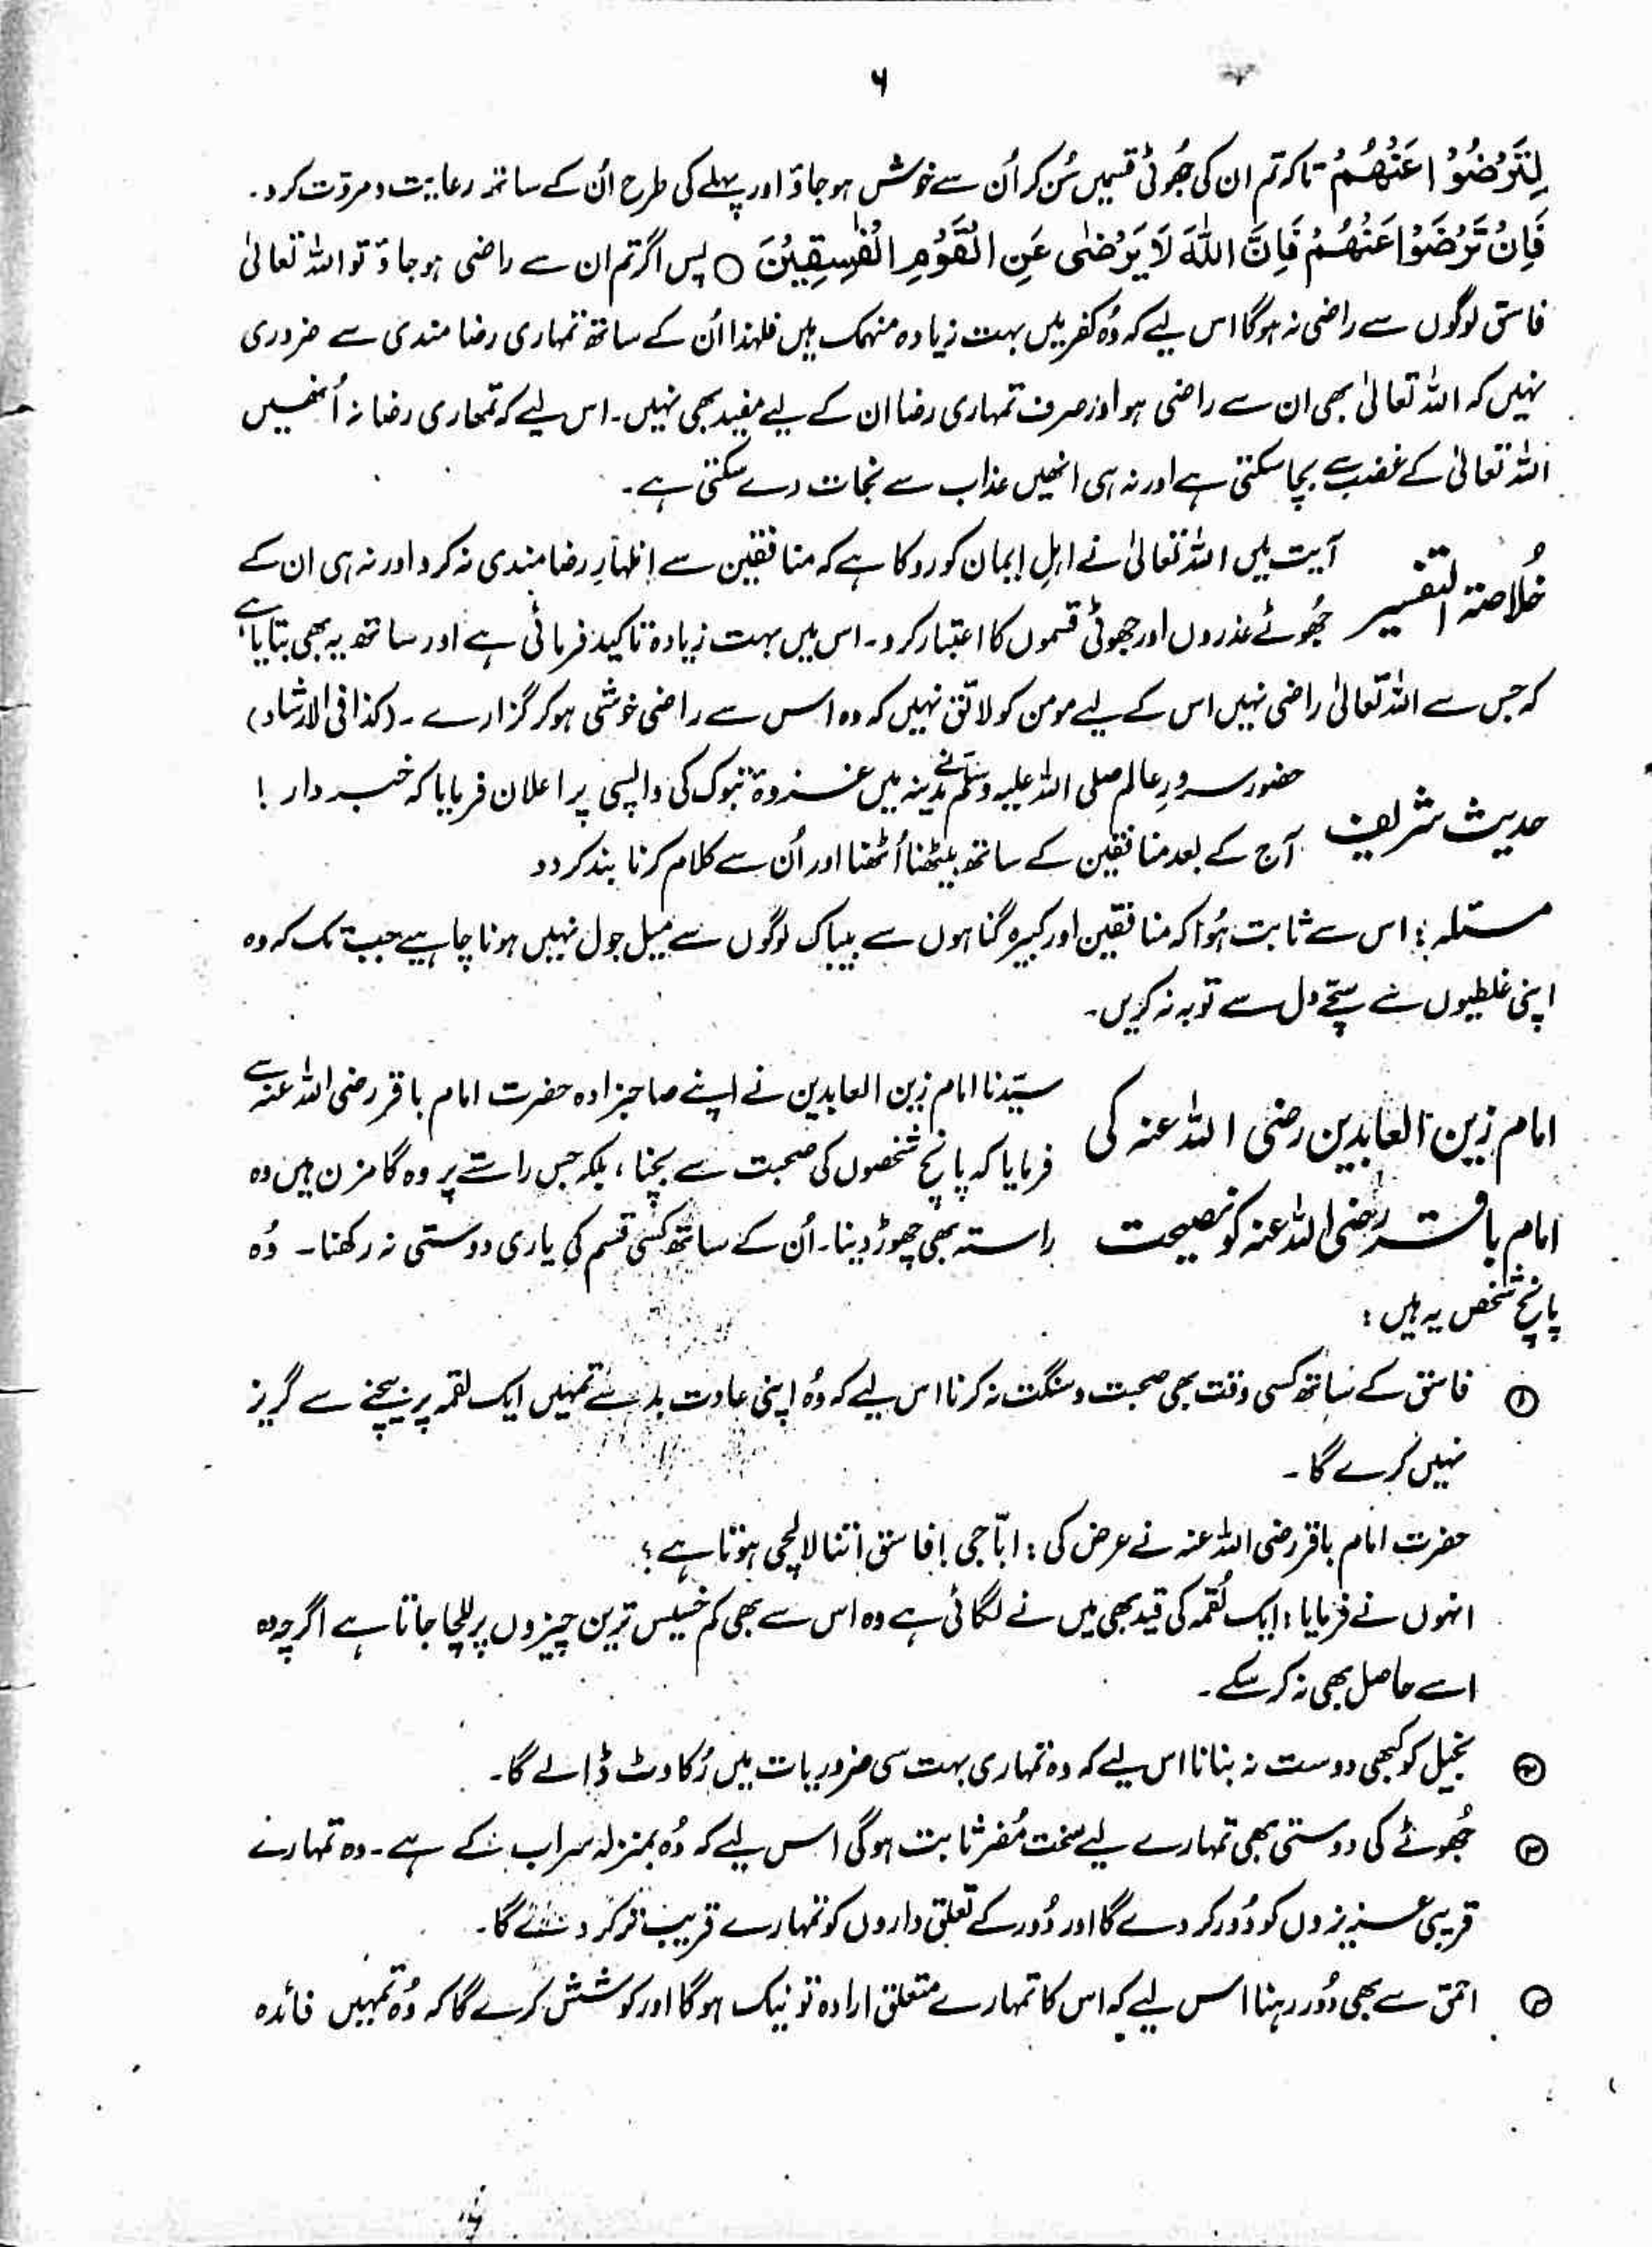 ۶
لِتَرْضَوْا عَنْهُمْ تاکہ تم ان کی جُھوٹی قسمیں سُن کر اُن سے خوش ہوجاؤ اور پہلے کی طرح اُن کے ساتھ رعایت و مروّت کرو۔
فَاِنْ تَرْضَوْا عَنْهُمْ فَاِنَّ اللّٰهَ لَا يَرْضٰى عَنِ الْقَوْمِ الْفٰسِقِيْنَ ○ پس اگر تم ان سے راضی ہوجاؤ تو اللہ تعالیٰ
فاسق لوگوں سے راضی نہ ہوگا اس لیے کہ وُہ کفر میں بہت زیادہ منہمک ہیں فلہٰذا اُن کے ساتھ تمہاری رضا مندی سے ضروری
نہیں کہ اللہ تعالیٰ بھی ان سے راضی ہو اور صرف تمہاری رضا ان کے لیے مفید بھی نہیں۔ اس لیے کہ تمھاری رضا نہ اُنھیں
اللہ تعالیٰ کے غضب سے بچا سکتی ہے اور نہ ہی انھیں عذاب سے نجات دے سکتی ہے۔
خُلاصۃ التفسیر آیت میں اللہ تعالیٰ نے اہلِ ایمان کو روکا ہے کہ منافقین سے اظہارِ رضامندی نہ کرو اور نہ ہی ان کے
جُھوٹے عذروں اور جھوٹی قسموں کا اعتبار کرو۔ اس میں بہت زیادہ تاکید فرمائی ہے اور ساتھ یہ بھی بتایا ہے
کہ جس سے اللہ تعالیٰ راضی نہیں اس کے لیے مومن کو لائق نہیں کہ وہ اس سے راضی خوشی ہو کر گزارے۔ (کذا فی الارشاد)
حدیث شریف حضور سرورِ عالم صلی اللہ علیہ وسلم نے مدینہ میں غزوۂ تبوک کی واپسی پر اعلان فرمایا کہ خبردار!
آج کے بعد منافقین کے ساتھ بیٹھنا اُٹھنا اور اُن سے کلام کرنا بند کر دو
مسئلہ: اس سے ثابت ہُوا کہ منافقین اور کبیرہ گناہوں سے بیباک لوگوں سے میل جول نہیں ہونا چاہیے جب تک کہ وہ
اپنی غلطیوں سے سچّے دل سے توبہ نہ کریں۔
امام زین العابدین رضی اللہ عنہ کی سیّدنا امام زین العابدین نے اپنے صاحبزادہ حضرت امام باقر رضی اللہ عنہ سے
فرمایا کہ پانچ شخصوں کی صحبت سے بچنا، بلکہ جس راستے پر وہ گامزن ہیں وہ
امام باقر رضی اللہ عنہ کو نصیحت راستہ بھی چھوڑ دینا۔ اُن کے ساتھ کسی قسم کی یاری دوستی نہ رکھنا۔ وُہ
پانچ شخص یہ ہیں:
① فاسق کے ساتھ کسی وقت بھی صحبت و سنگت نہ کرنا اس لیے کہ وُہ اپنی عادت بد سے تمہیں ایک لقمہ پر بیچنے سے گریز
نہیں کرے گا۔
حضرت امام باقر رضی اللہ عنہ نے عرض کی: ابّا جی! فاسق اتنا لالچی ہوتا ہے؟
انہوں نے فرمایا: ایک لُقمہ کی قید بھی میں نے لگائی ہے وہ اس سے بھی کم خسیس ترین چیزوں پر للچا جاتا ہے اگرچہ وہ
اسے حاصل بھی نہ کر سکے۔
② بخیل کو کبھی دوست نہ بنانا اس لیے کہ وہ تمہاری بہت سی ضروریات میں رُکاوٹ ڈالے گا۔
③ جُھوٹے کی دوستی بھی تمہارے لیے سخت مُضر ثابت ہوگی اس لیے کہ وُہ بمنزلہ سراب کے ہے۔ وہ تمہارے
قریبی عزیزوں کو دُور کر دے گا اور دُور کے تعلق داروں کو تمہارے قریب تر کر دے گا۔
④ احمق سے بھی دُور رہنا اس لیے کہ اس کا تمہارے متعلق ارادہ تو نیک ہوگا اور کوشش کرے گا کہ وُہ تمہیں فائدہ